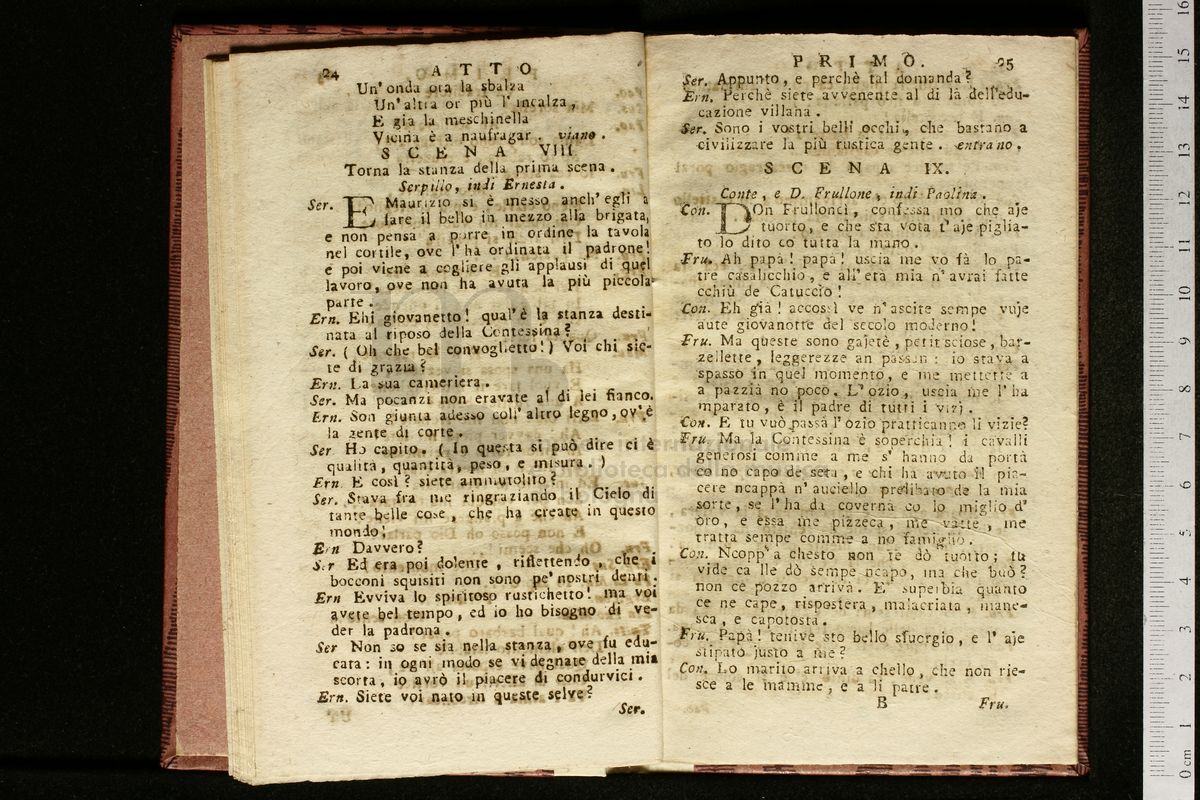 24
A T T O
Un' onda ora la sbalza
Un' altra or più l' incalza,
E già la meschinella
Vicina è a naufragar . viano .
S C E N A VIII
Torna la stanza della prima scena .
Serpillo, indi Ernesta .
Ser. E Maurizio si è messo anch' egli a
fare il bello in mezzo alla brigata,
e non pensa a porre in ordine la tavola
nel cortile, ove l' ha ordinata il padrone!
e poi viene a cogliere gli applausi di quel
lavoro, ove non ha avuta la più piccola
parte .
Ern. Ehi giovanetto! qual' è la stanza desti-
nata al riposo della Contessina?
Ser. ( Oh che bel convoglietto! ) Voi chi sie-
te di grazia?
Ern. La sua cameriera .
Ser. Ma pocanzi non eravate al di lei fianco.
Ern. Son giunta adesso coll' altro legno, ov' è
la gente di corte .
Ser Ho capito . ( In questa si può dire ci è
qualità, quantità, peso, e misura . )
Ern E così? siete ammutolito?
Ser. Stava fra me ringraziando il Cielo di
tante belle cose, che ha create in questo
mondo!
Ern Davvero?
Ser Ed era poi dolente , riflettendo , che i
bocconi squisiti non sono pe' nostri denti .
Ern Evviva lo spiritoso rustichetto! ma voi
avete bel tempo, ed io ho bisogno di ve-
der la padrona .
Ser Non so se sia nella stanza, ove fu edu-
cata: in ogni modo se vi degnate della mia
scorta, io avrò il piacere di condurvici .
Ern. Siete voi nato in queste selve?
Ser.
P R I M O .
25
Ser. Appunto, e perchè tal domanda?
Ern. Perchè siete avvenente al di là dell' edu-
cazione villana .
Ser. Sono i vostri belli occhi, che bastano a
civilizzare la più rustica gente . entrano .
S C E N A IX.
Conte, e D. Frullone, indi Paolina .
Con. DOn Frullonci, confessa mo che aje
tuorto, e che sta vota t' aje piglia-
to lo dito co tutta la mano .
Fru. Ah papà! papà! uscia me vo fà lo pa-
tre casalicchio, e all' età mia n' avrai fatte
cchiù de Catuccio!
Con. Eh già! accossì ve n' ascite sempe vuje
aute giovanotte del secolo moderno!
Fru. Ma queste sono gajetè, petitsciose, bar-
zellette, leggerezze an passan: io stava a
spasso in quel momento, e me mettette a
a pazzià no poco. L' ozio, uscia me l' ha
mparato, è il padre di tutti i vizj .
Con. E tu vuò passà l' ozio pratticanno li vizie?
Fru Ma la Contessina è soperchia! i cavalli
generosi comme a me s' hanno da portà
co no capo de seta, e chi ha avuto il pia-
cere ncappà n' auciello prelibato de la mia
sorte, se l' ha da coverna co lo miglio d'
oro, e essa me pizzeca, me vatte, me
tratta sempe comme a no famiglio.
Con. Ncopp' a chesto non te dò tuorto; tu
vide ca lle dò sempe ncapo, ma che buò?
non ce pozzo arrivà. E' superbia quanto
ce ne cape, rispostera, malacriata, mane-
sca, e capotosta.
Fru. Papà! tenive sto bello sfuorgio, e l' aje
stipato justo a me?
Con. Lo marito arriva a chello, che non rie-
sce a le mamme, e a li patre .
B
Fru.